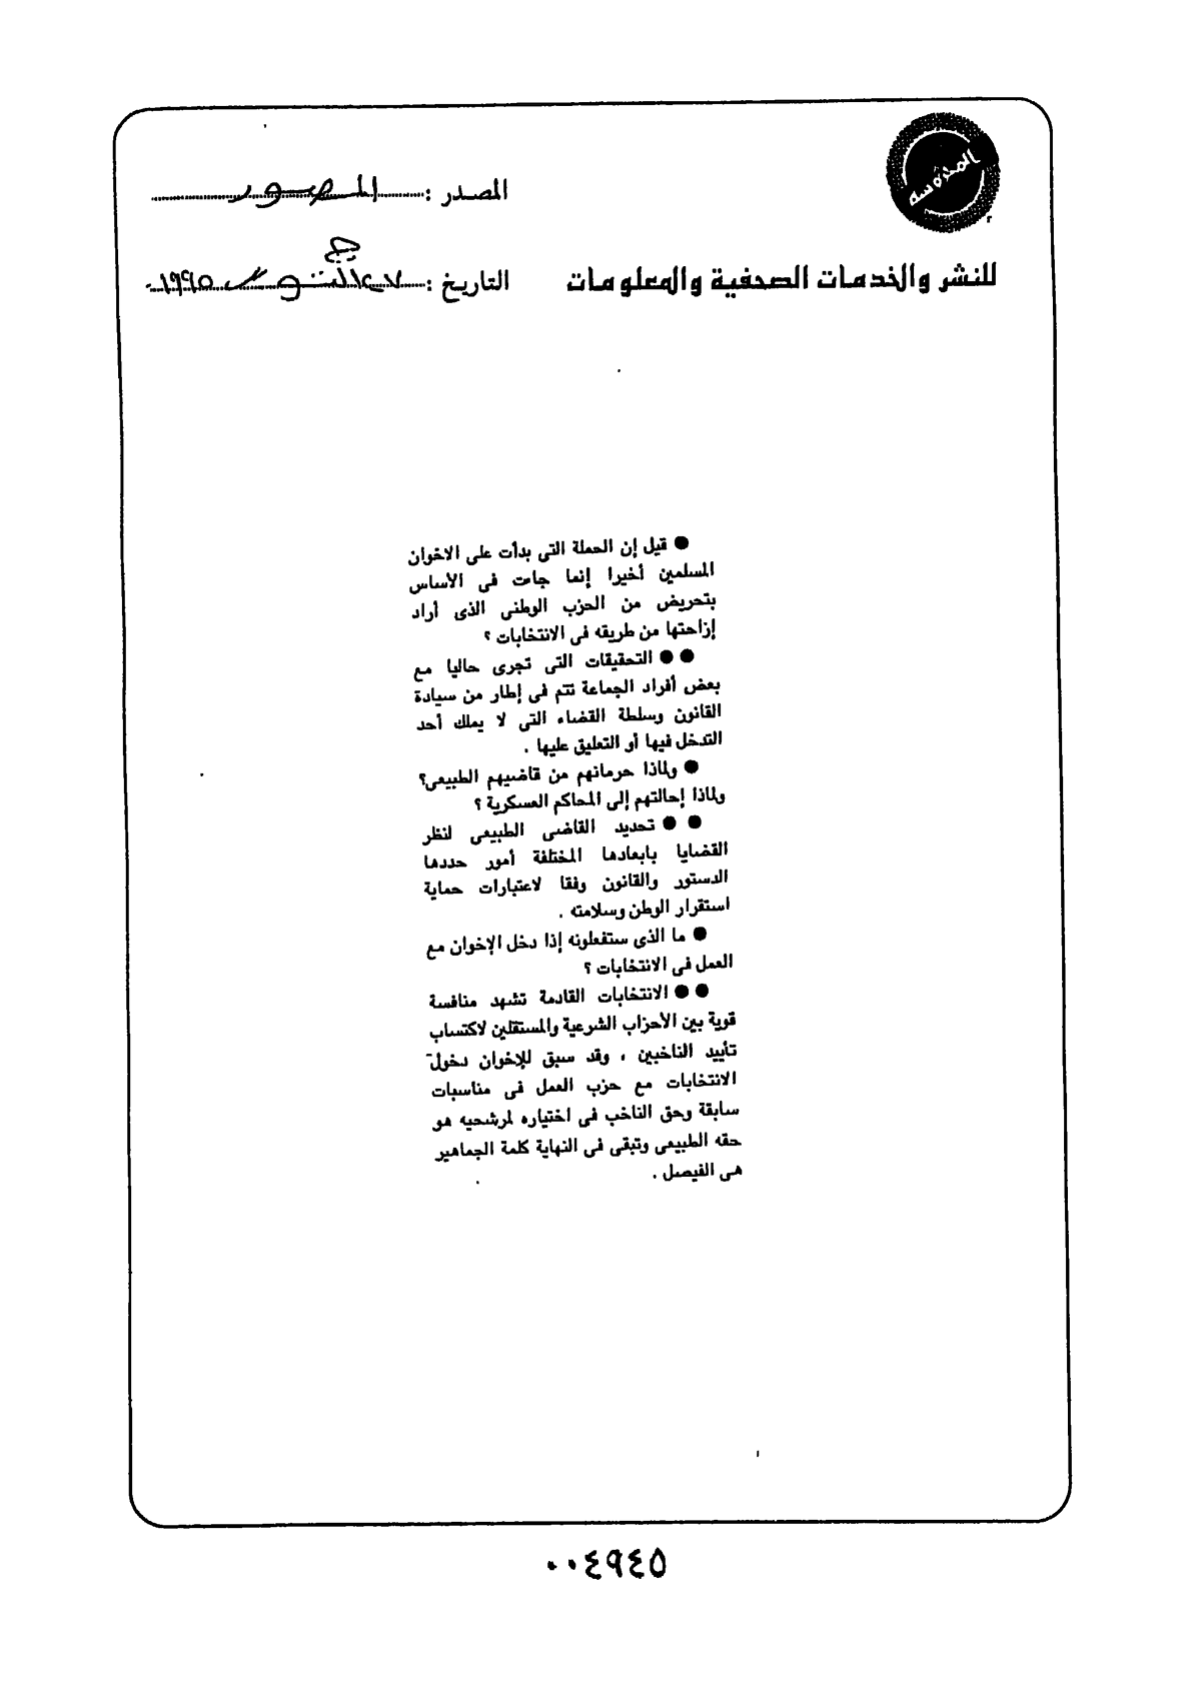 المحروسة
المصدر : المصور
للنشر والخدمات الصحفية والمعلومات
التاريخ : ١٩٩٥
● قيل إن الحملة التى بدأت على الاخوان
المسلمين أخيرا إنما جات فى الأساس
بتحريض من الحزب الوطنى الذى أراد
إزاحتها من طريقه فى الانتخابات ؟
●● التحقيقات التى تجرى حاليا مع
بعض أفراد الجماعة تتم فى إطار من سيادة
القانون وسلطة القضاء التى لا يملك أحد
التدخل فيها أو التعليق عليها .
● ولماذا حرمانهم من قاضيهم الطبيعى؟
ولماذا إحالتهم إلى المحاكم العسكرية ؟
●● تحديد القاضى الطبيعى لنظر
القضايا بابعادها المختلفة أمور حددها
الدستور والقانون وفقا لاعتبارات حماية
استقرار الوطن وسلامته .
● ما الذى ستفعلونه إذا دخل الإخوان مع
العمل فى الانتخابات ؟
●● الانتخابات القادمة تشهد منافسة
قوية بين الأحزاب الشرعية والمستقلين لاكتساب
تأييد الناخبين ، وقد سبق للإخوان دخول
الانتخابات مع حزب العمل فى مناسبات
سابقة وحق الناخب فى اختياره لمرشحيه هو
حقه الطبيعى وتبقى فى النهاية كلمة الجماهير
هى الفيصل .
٠٠٤٩٤٥